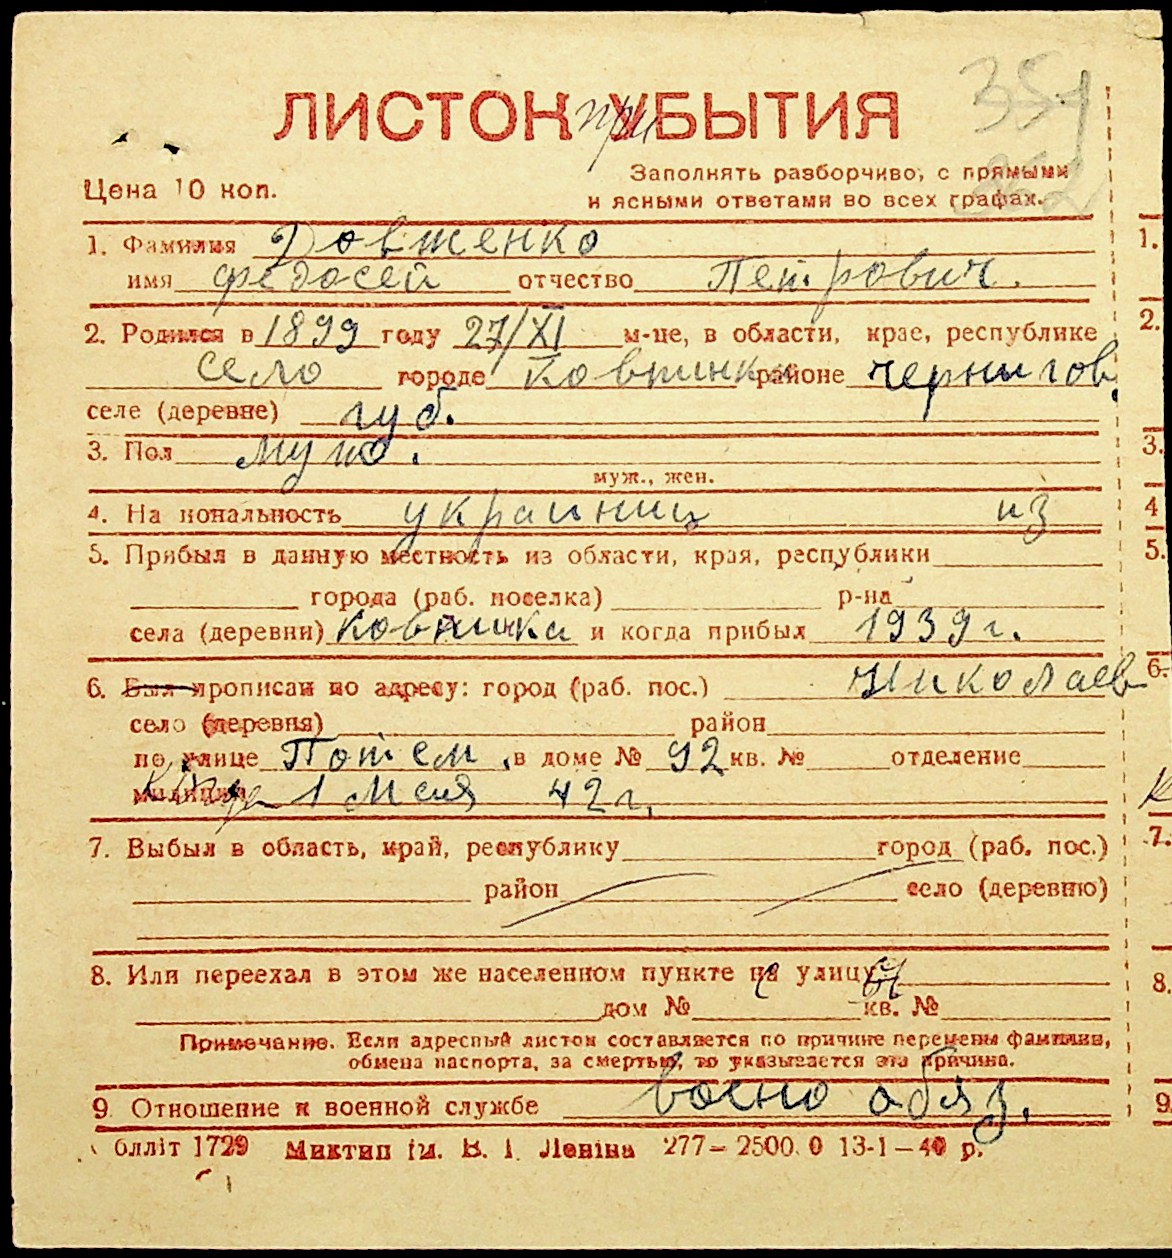 351
ЛИСТОК при УБЫТИЯ
352
Цена 10 коп.
Заполнять разборчиво, с прямыми
и ясными ответами во всех графах.
1. Фамилия Довженко
имя Федосей отчество Петрович.
2. Родился в 1899 году 27/XI м-це, в области, крае, республике
село городе Ковпинка районе Чернигов.
селе (деревне) губ.
3. Пол муж.
муж., жен.
4. На иональность украинец из
5. Прибыл в данную местность из области, края, республики
города (раб. поселка) р-на
села (деревни) Ковпинка и когда прибыл 1939 г.
6. Был прописан по адресу: город (раб. пос.) Николаев
село (деревня) район
по улице Потем. в доме № 92 кв. № отделение
милиции 1 Мая 42 г.
7. Выбыл в область, край, республику город (раб. пос.)
район село (деревню)
8. Или переехал в этом же населенном пункте на улицу
дом № кв. №
Примечание. Если адресный листок составляется по причине перемены фамилии,
обмена паспорта, за смертью, то указывается эта причина.
9 Отношение к военной службе воено обяз.
блліт 1729 Миктип ім. В. І. Леніна 277—2500.0 13-1—40 р.
1.
2.
3.
4
5.
6.
7.
8.
9